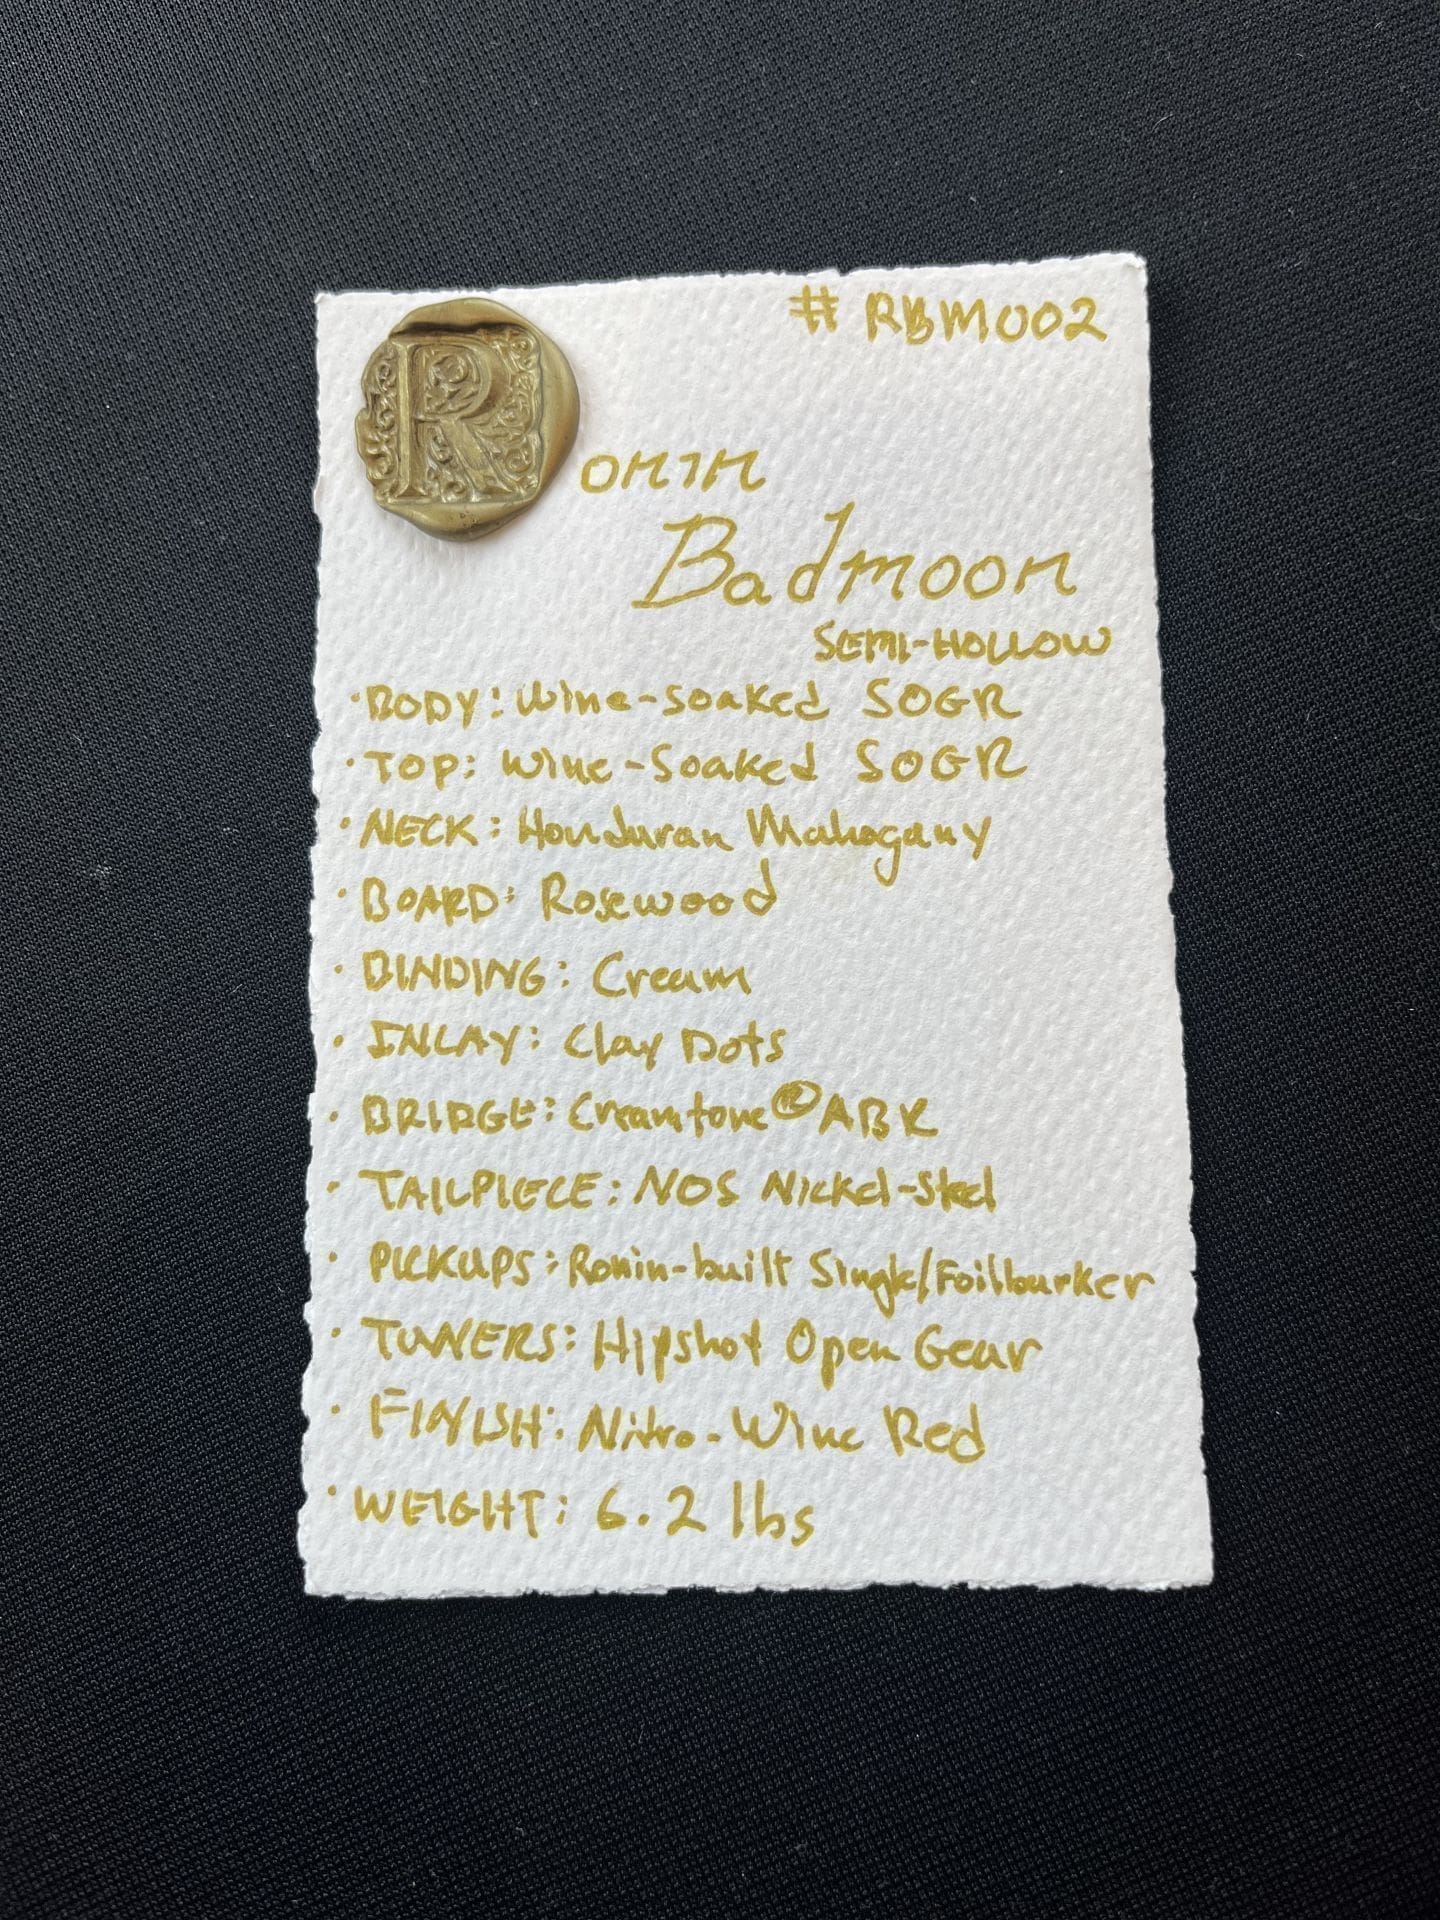 # RBM002
Ronin
Badmoon
SEMI-HOLLOW
• BODY: Wine-Soaked SOGR
• TOP: Wine-Soaked SOGR
• NECK: Honduran Mahogany
• BOARD: Rosewood
• BINDING: Cream
• INLAY: Clay Dots
• BRIDGE: Creamtone® ABR
• TAILPIECE: NOS Nickel-Steel
• PICKUPS: Ronin-built Single/Foilburker
• TUNERS: Hipshot Open Gear
• FINISH: Nitro-Wine Red
• WEIGHT: 6.2 lbs